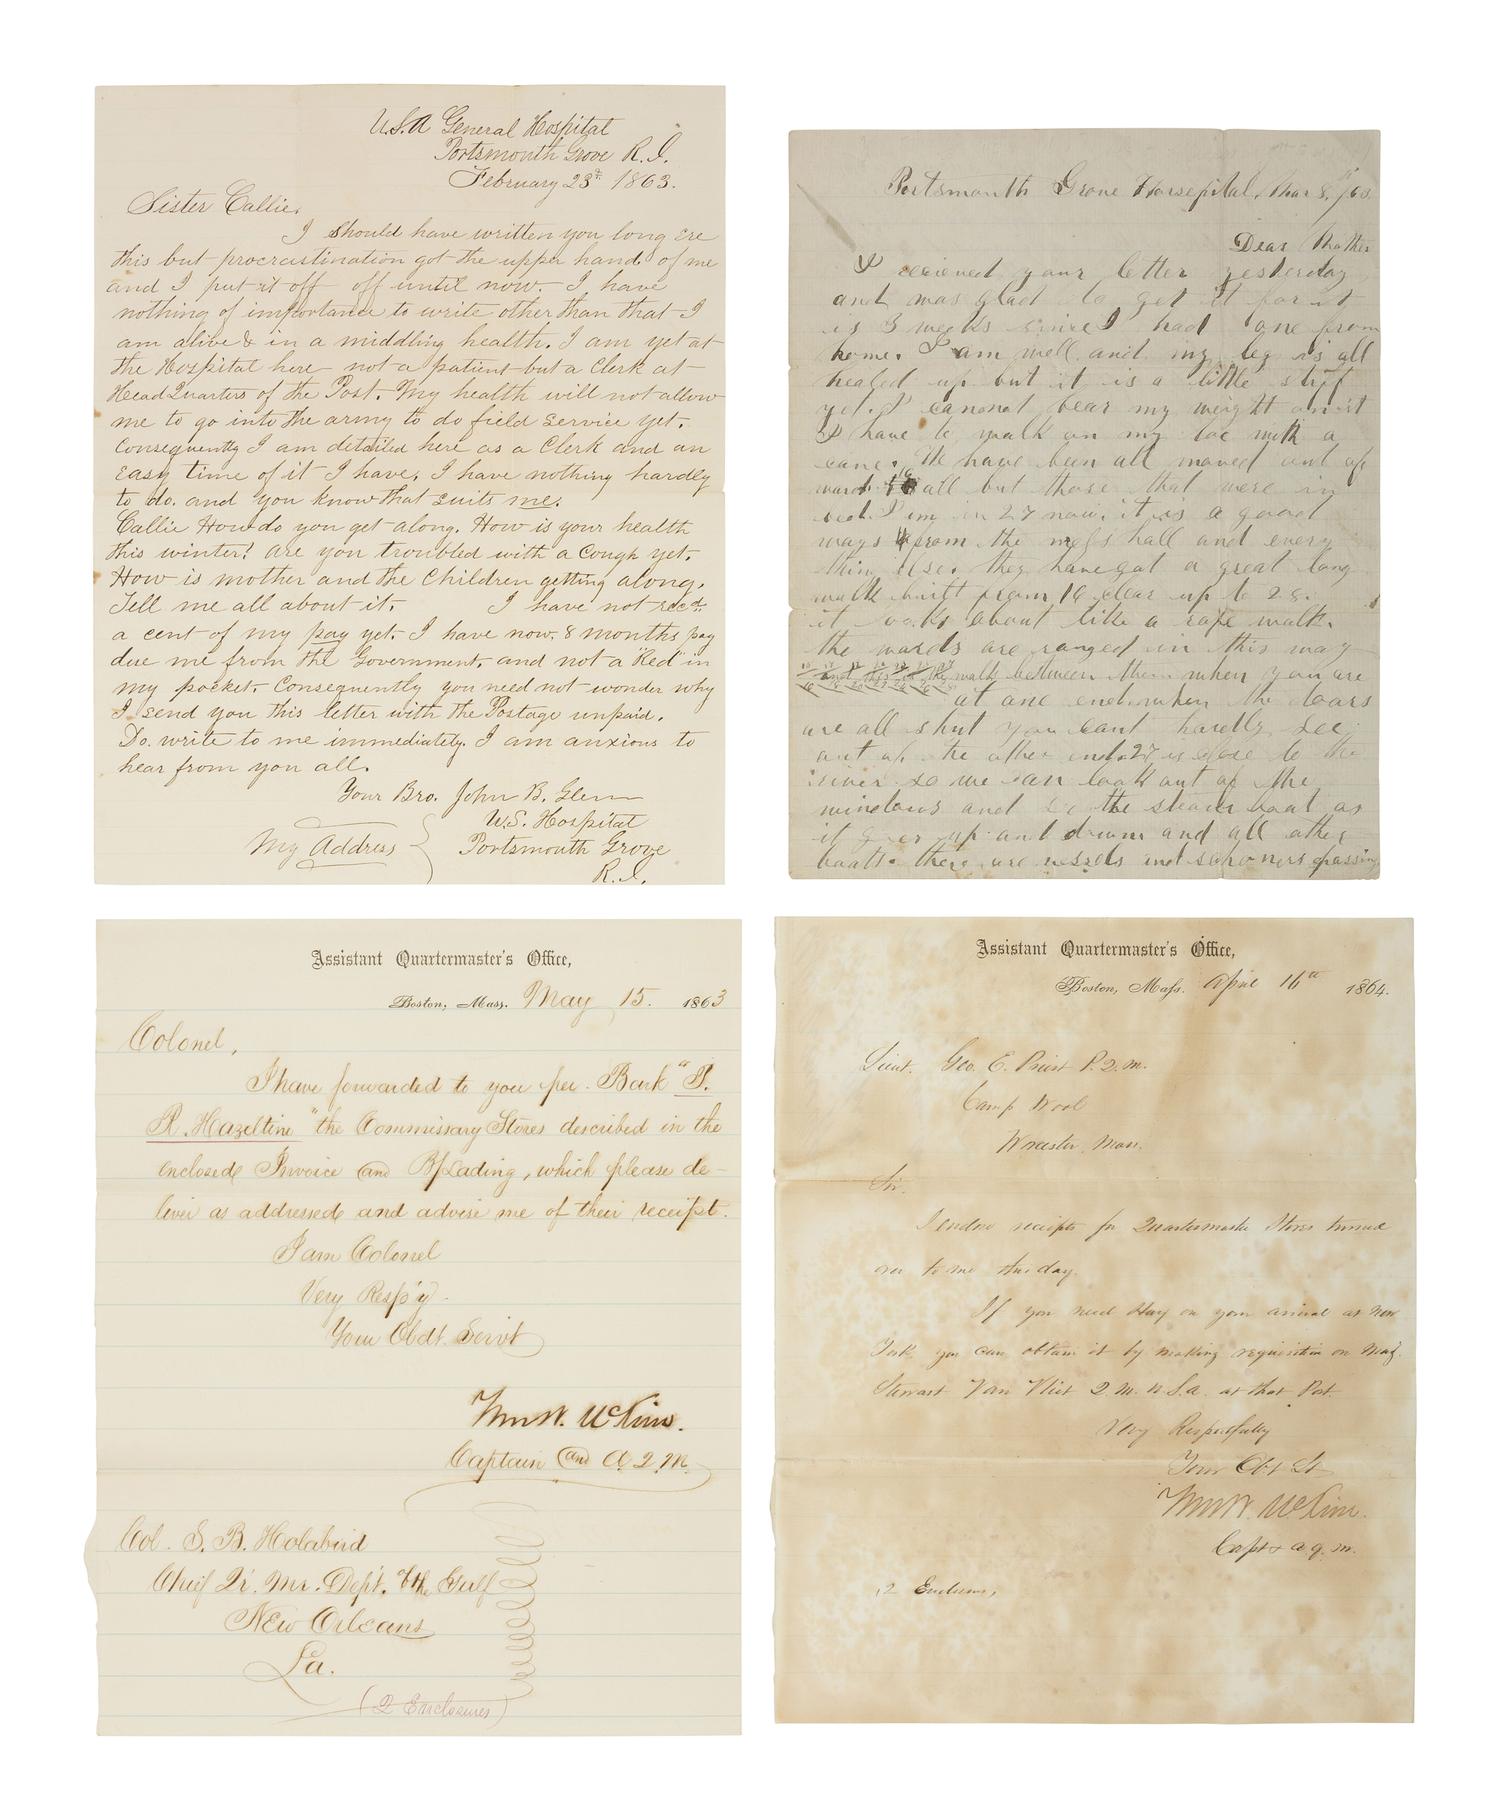 U.S.A General Hospital
Portsmouth Grove R.I.
February 23d. 1863.
Sister Callie,
I should have written you long ere
this but procrastination got the upper hand of me
and I put it off off until now. I have
nothing of importance to write other than that I
am alive & in a middling health. I am yet at
the Hospital here not a patient but a Clerk at
Head Quarters of the Post. My health will not allow
me to go into the army to do field service yet.
Consequently I am detailed here as a Clerk and an
easy time of it I have. I have nothing hardly
to do. and you know that suits me.
Callie How do you get along. How is your health
this winter? are you troubled with a Cough yet.
How is mother and the Children getting along.
Tell me all about it. I have not recd.
a cent of my pay yet. I have now. 8 months pay
due me from the Government. and not a "Red" in
my pocket. Consequently you need not wonder why
I send you this letter with the Postage unpaid.
Do. write to me immediately. I am anxious to
hear from you all.
Your Bro. John B. Glenn
U.S. Hospital
My Address { Portsmouth Grove
R.I.
Portsmouth Grove Horsepital, Mar 8, /63
Dear Mother
I recieved your letter yesterday
and was glad to get it for it
is 3 weeks since I had one from
home. I am well and my leg is all
healed up but it is a little stiff
yet. I cannot bear my weight on it
I have to walk on my toe with a
cane. We have been all moved out of
ward 16 all but those that were in
bed. I im in 27 now. it is a good
ways from the mess hall and every
thin else. they have got a great long
walk built from 16 clear up to 28.
it looks about like a rope walk.
the wards are ranged in this way
and the walk between them when you are
at one end when the doars
are all shut you cant hardly see
out of the other end. 27 is close to the
river so we can look out of the
windows and se the steam boat as
it goes up and down and all other
boats. there are vessels and schoners passing
Assistant Quartermaster's Office,
Boston, Mass. May 15. 1863
Colonel,
I have forwarded to you per. Bark "S.
R. Hazeltine" the Commissary Stores described in the
enclosed Invoice and B/Lading, which please de-
liver as addressed and advise me of their receipt.
I am Colonel
Very Resp'y.
Your Obdt. Servt
Wm W. McKim.
Captain and A.Q.M.
Col. S. B. Holabird
Chief Qr. Mr. Dept. of the Gulf
New Orleans
La.
(2 Enclosures)
Assistant Quartermaster's Office,
Boston, Mass. April 16th 1864.
Lieut. Geo. E. Priest R.Q.M.
Camp Wool
Worcester, Mass.
Sir.
I enclose receipts for Quartermaster Stores turned
over to me this day.
If you need Hay on your arrival at New
York you can obtain it by making requisition on Maj.
Stewart Van Vliet Q.M. U.S.A. at that Post.
Very Respectfully
Your Obt St
Wm W. McKim.
Capt & a.q.m.
2 Enclosures,